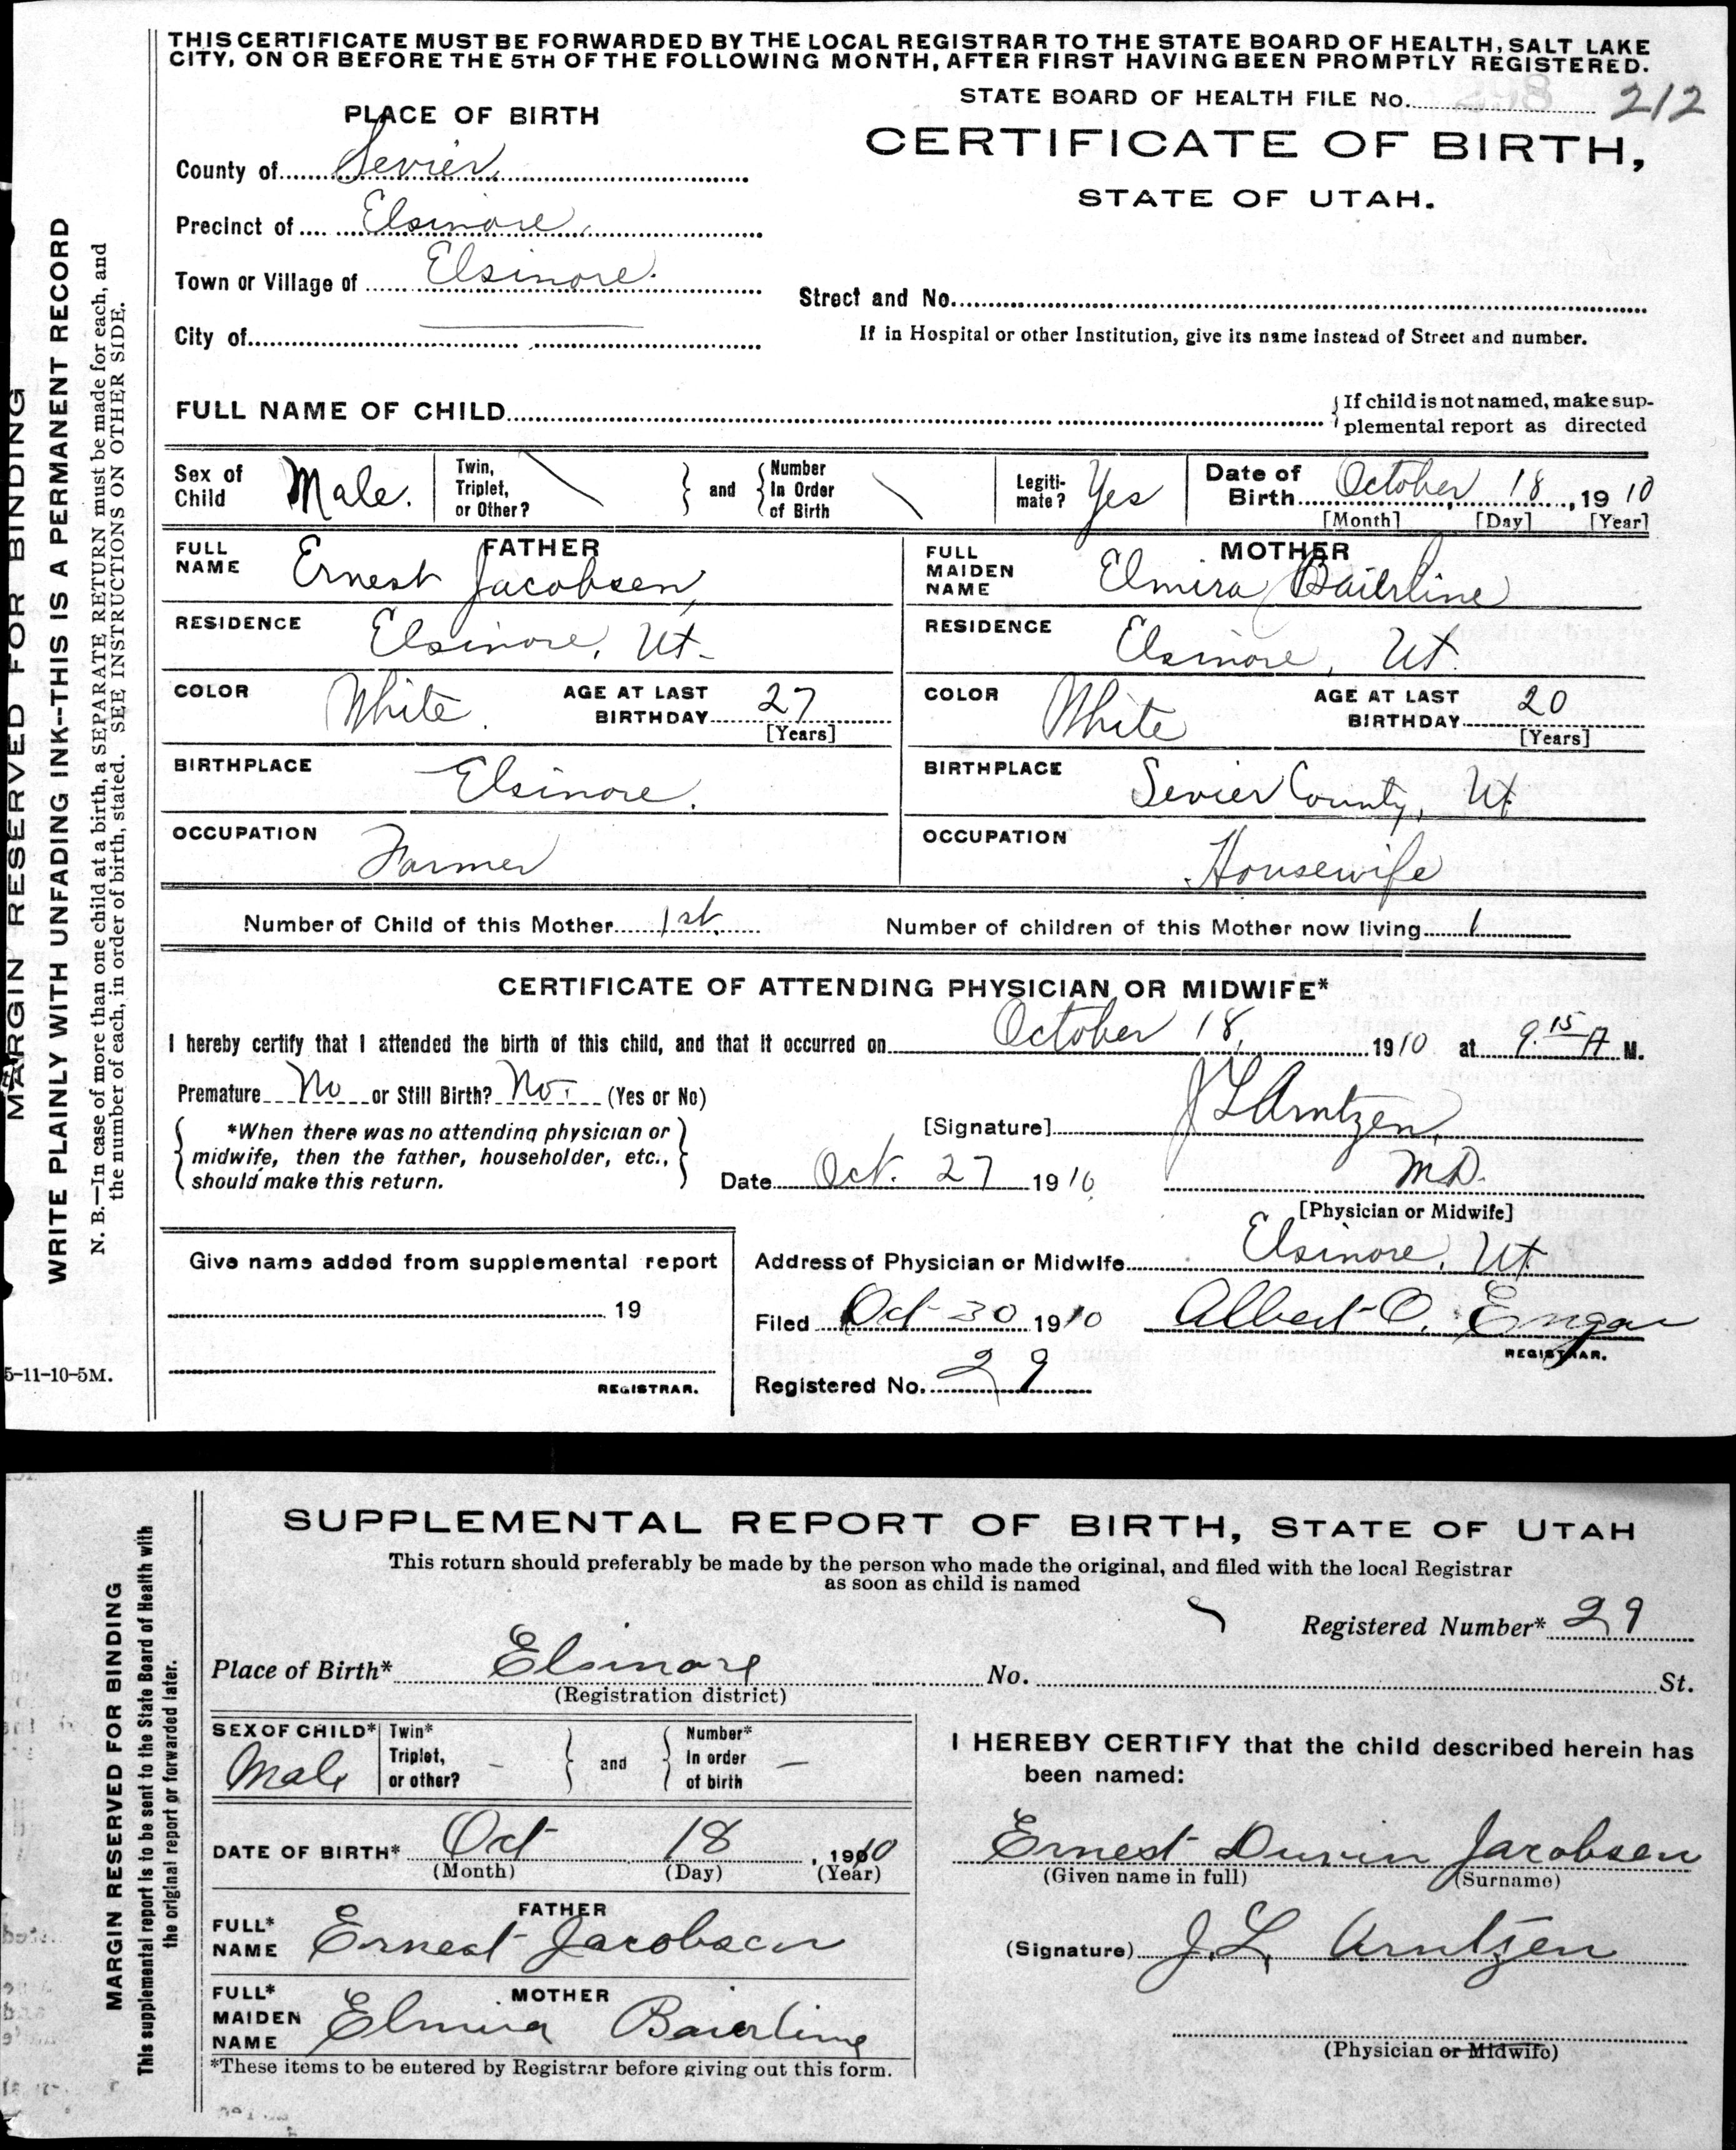 THIS CERTIFICATE MUST BE FORWARDED BY THE LOCAL REGISTRAR TO THE STATE BOARD OF HEALTH, SALT LAKE
CITY, ON OR BEFORE THE 5TH OF THE FOLLOWING MONTH, AFTER FIRST HAVING BEEN PROMPTLY REGISTERED.
STATE BOARD OF HEALTH FILE No. 212
PLACE OF BIRTH
CERTIFICATE OF BIRTH,
STATE OF UTAH.
County of Sevier.
Precinct of Elsinore.
Town or Village of Elsinore.
Street and No.
City of
If in Hospital or other Institution, give its name instead of Street and number.
FULL NAME OF CHILD
If child is not named, make sup-
plemental report as directed
Sex of Child Male.
Twin, Triplet, or Other?
and
Number In Order of Birth
Legiti-mate? Yes
Date of Birth October 18, 1910
[Month] [Day] [Year]
FATHER
FULL NAME Ernest Jacobsen,
RESIDENCE Elsinore, Ut.
COLOR White. AGE AT LAST BIRTHDAY 27
[Years]
BIRTHPLACE Elsinore.
OCCUPATION Farmer
MOTHER
FULL MAIDEN NAME Elmira Baierline
RESIDENCE Elsinore, Ut.
COLOR White AGE AT LAST BIRTHDAY 20
[Years]
BIRTHPLACE Sevier County, Ut
OCCUPATION Housewife
Number of Child of this Mother 1st. Number of children of this Mother now living 1
CERTIFICATE OF ATTENDING PHYSICIAN OR MIDWIFE*
I hereby certify that I attended the birth of this child, and that it occurred on October 18, 1910 at 9.15 A M.
Premature No or Still Birth? No. (Yes or No)
*When there was no attending physician or
midwife, then the father, householder, etc.,
should make this return.
[Signature] J L Arntzen,
Date Oct. 27 1910 M.D.
[Physician or Midwife]
Give name added from supplemental report
19
REGISTRAR.
Address of Physician or Midwife Elsinore, Ut.
Filed Oct 30 1910 Albert O.
REGISTRAR.
Registered No. 29
MARGIN RESERVED FOR BINDING
WRITE PLAINLY WITH UNFADING INK--THIS IS A PERMANENT RECORD
N. B.—In case of more than one child at a birth, a SEPARATE RETURN must be made for each, and
the number of each, in order of birth, stated. SEE INSTRUCTIONS ON OTHER SIDE.
5-11-10-5M.
SUPPLEMENTAL REPORT OF BIRTH, STATE OF UTAH
This return should preferably be made by the person who made the original, and filed with the local Registrar
as soon as child is named
Registered Number* 29
Place of Birth* Elsinore No. St.
(Registration district)
SEX OF CHILD* Male
Twin* Triplet, or other? -
and
Number* In order of birth —
DATE OF BIRTH* Oct 18, 1910
(Month) (Day) (Year)
FATHER
FULL* NAME Ernest Jacobsen
MOTHER
FULL* MAIDEN NAME Elmira Baierline
*These items to be entered by Registrar before giving out this form.
I HEREBY CERTIFY that the child described herein has
been named:
Ernest Durin Jacobsen
(Given name in full) (Surname)
(Signature) J. L. Arntzen
(Physician or Midwife)
MARGIN RESERVED FOR BINDING
This supplemental report is to be sent to the State Board of Health with
the original report or forwarded later.